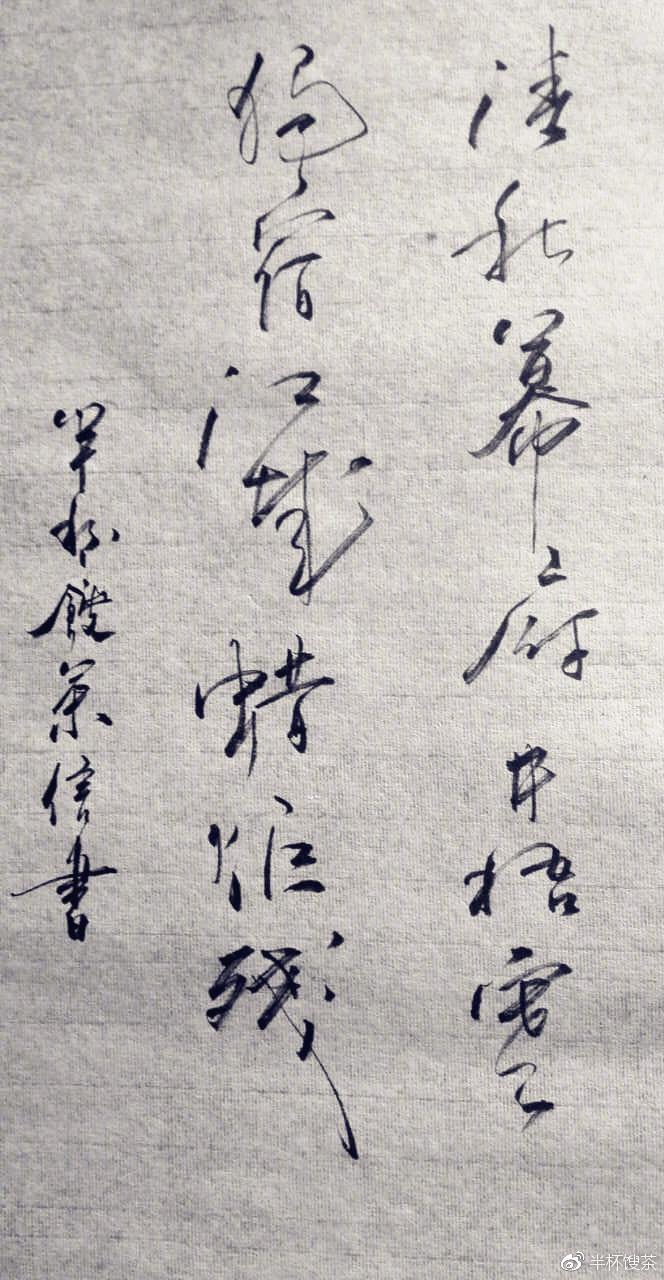 清秋幕府井梧寒
獨宿江城蠟炬残
半杯餿茶信書
半杯馊茶